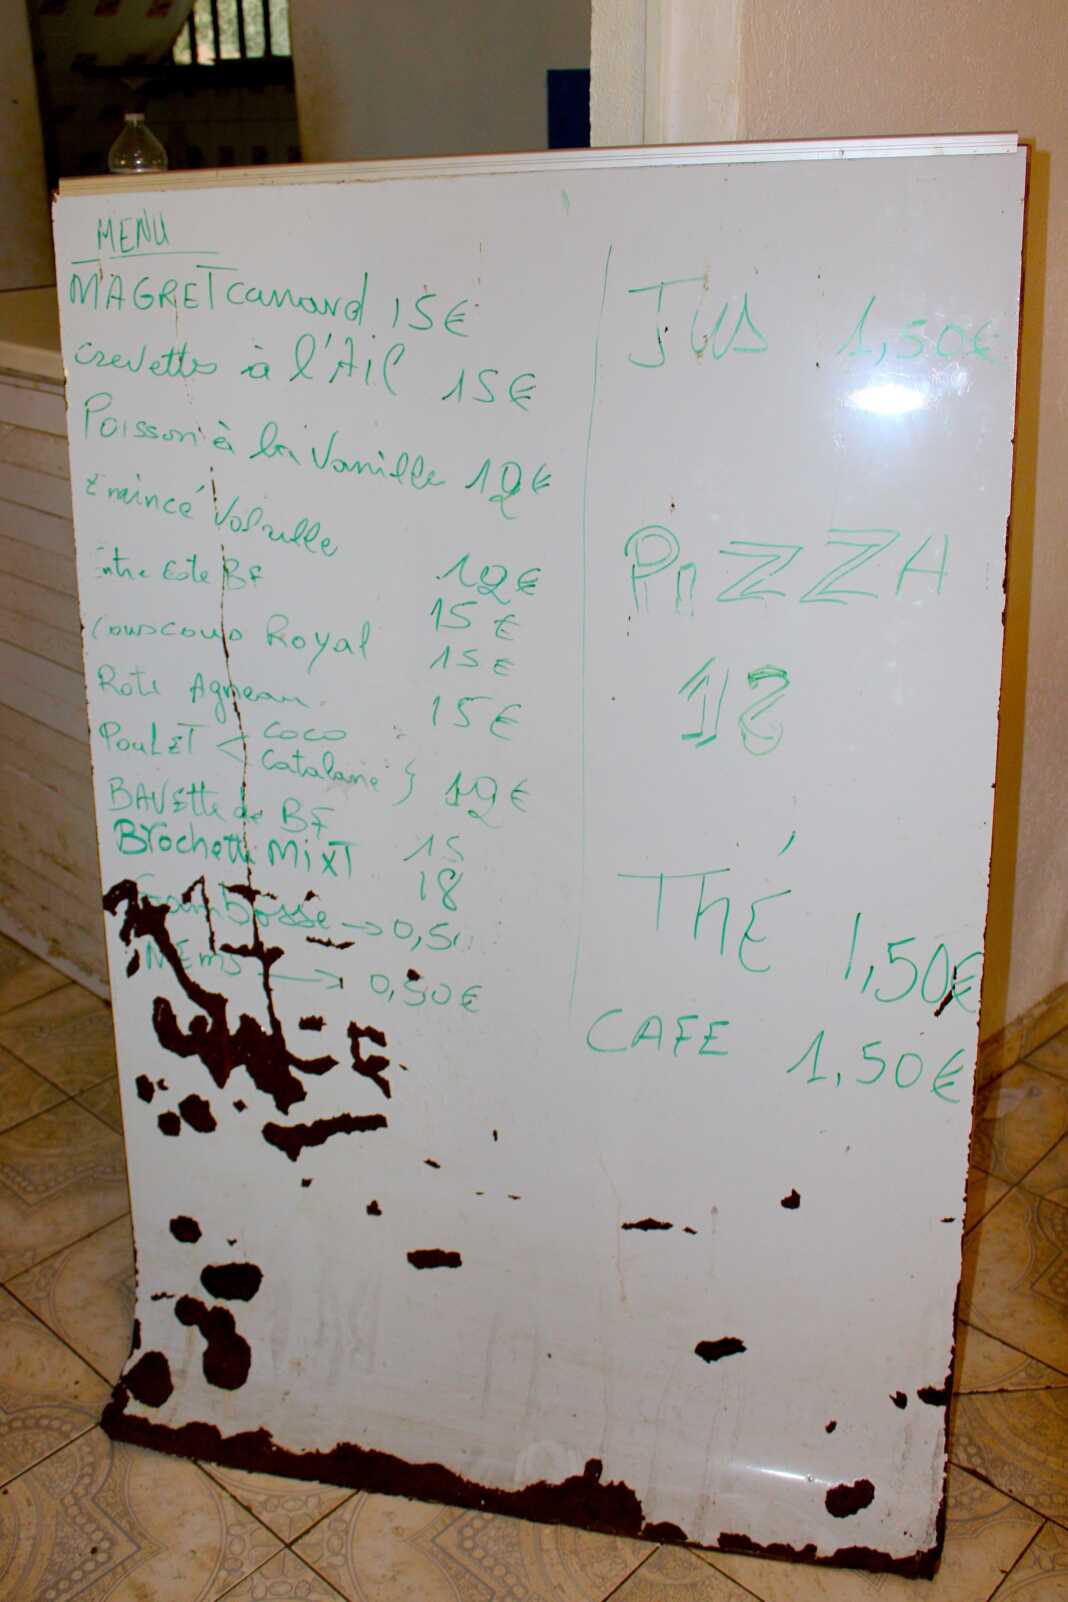 MENU
MAGRET canard 15€
crevettes à l'AiL 15€
Poisson à la Vanille 12€
Emincé Volaille 12€
Entre Cote BF 15€
Couscous Royal 15€
Roti Agneau 15€
POULET < COCO
Catalane } 12€
BAVette de BF 15
Brochette MiXT 18
Sambosse → 0,50
NEms → 0,50€
JUS 1,50€
PIZZA
12
THÉ 1,50€
CAFE 1,50€